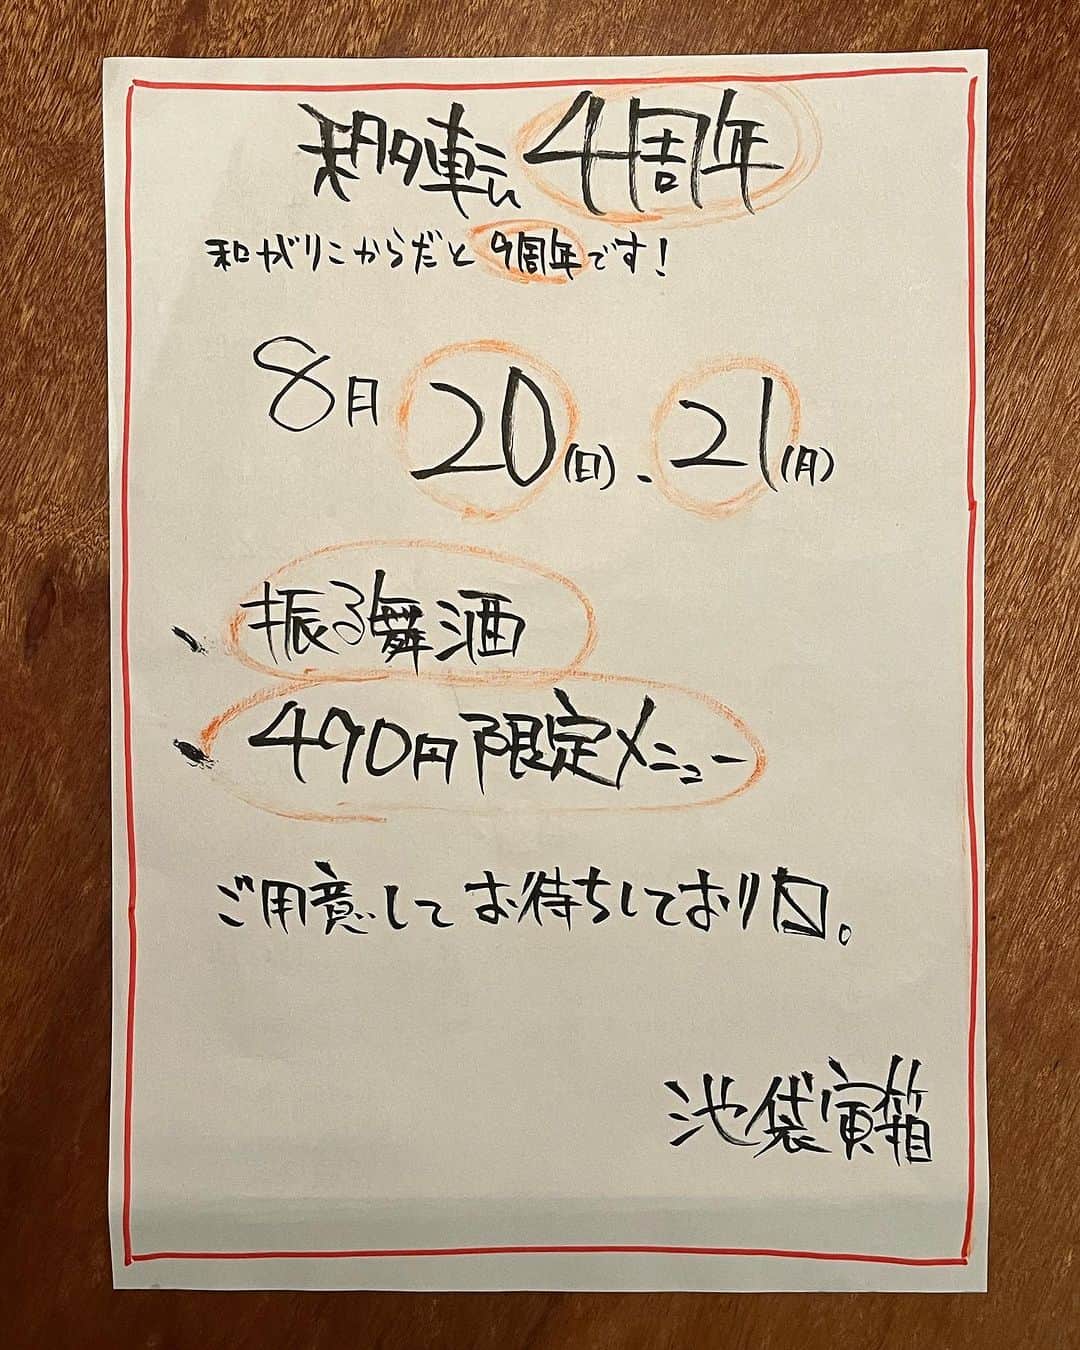 移転4周年
和がりこからだと9周年です!
8月20(日)、21(月)
、振る舞酒
、490円限定メニュー
ご用意してお待ちしております。
池袋寅箱